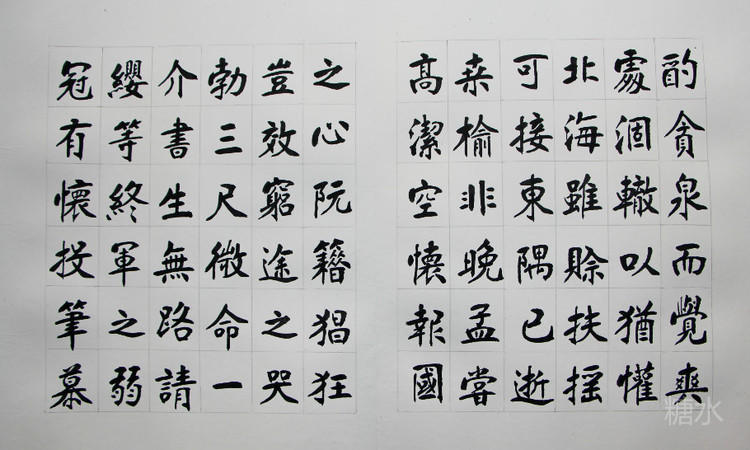 酌貪泉而覺爽
處涸轍以猶懽
北海雖賒扶摇
可接東隅已逝
桒榆非晚孟嘗
髙潔空懷報國
之心阮籍猖狂
豈效窮途之哭
勃三尺微命一
介書生無路請
纓等終軍之弱
冠有懷投筆慕
糖水